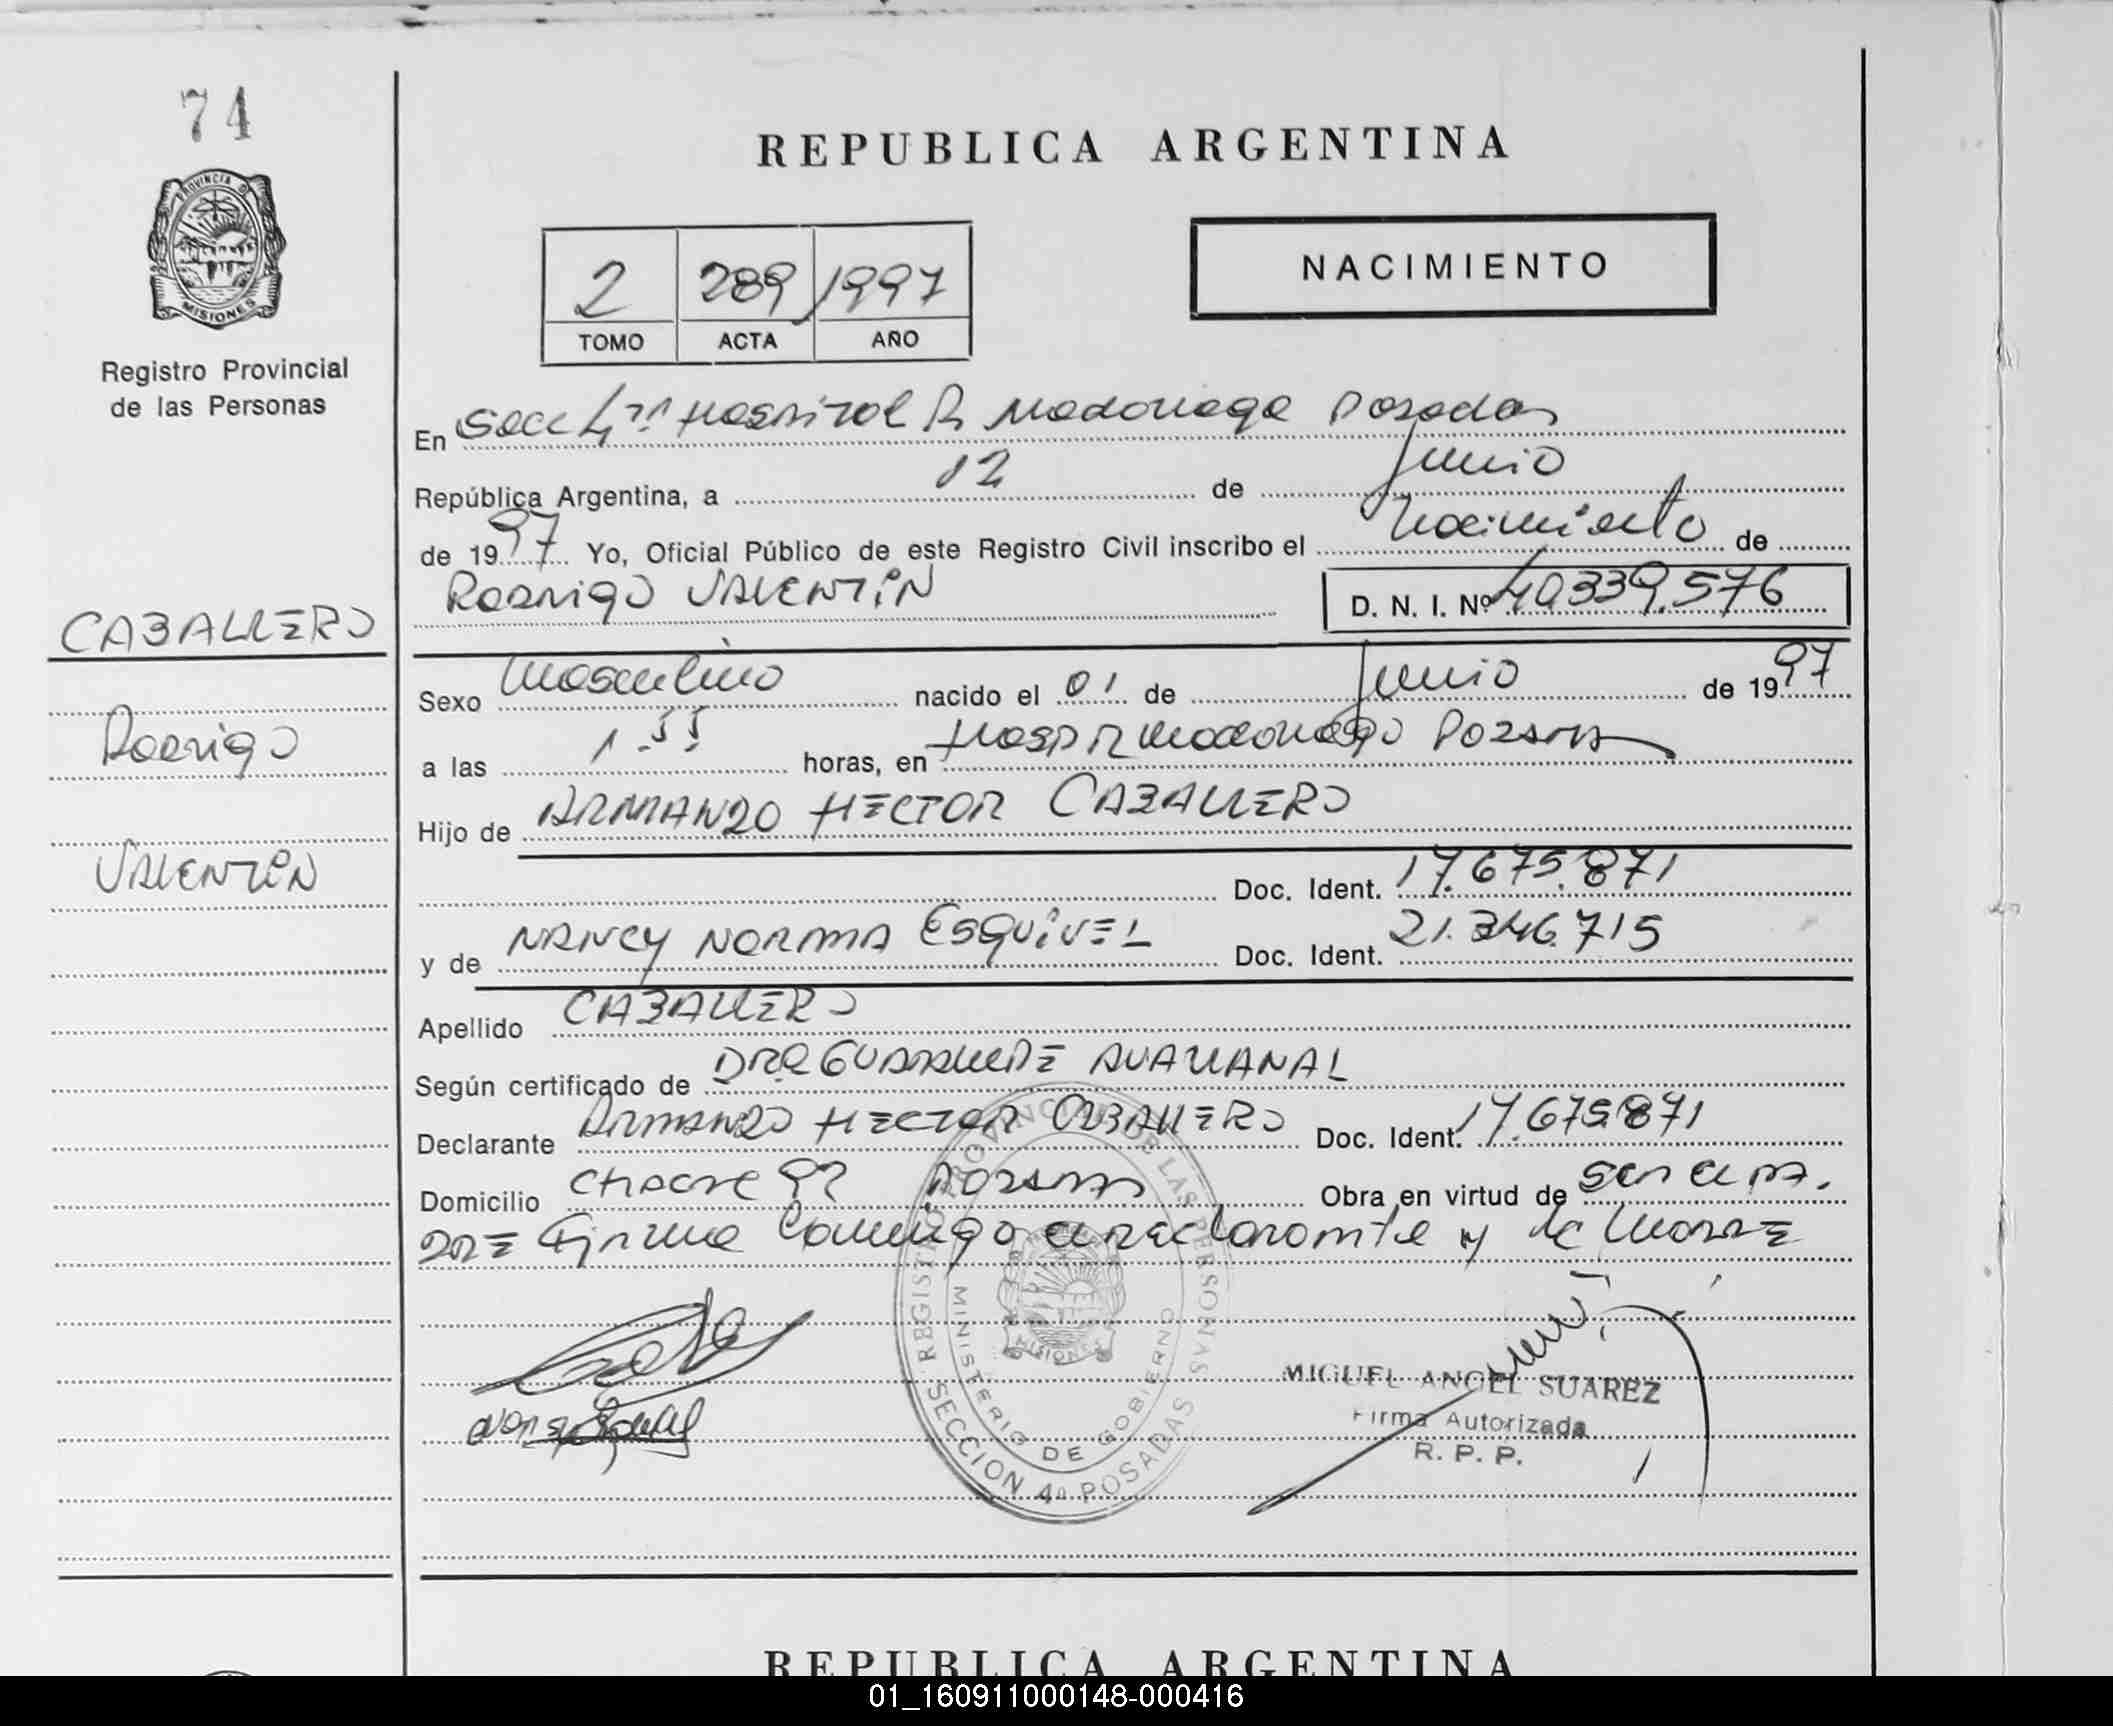 74
PROVINCIA D
MISIONES
Registro Provincial
de las Personas
REPUBLICA ARGENTINA
2 289 1997
TOMO ACTA AÑO
NACIMIENTO
En Secc 4ta Hospital R Madariaga Posadas
República Argentina, a 12 de Junio
de 1997 Yo, Oficial Público de este Registro Civil inscribo el Nacimiento de
Rodrigo VALENTIN D. N. I. Nº 40.339.576
CABALLERO
Rodrigo
VALENTIN
Sexo Masculino nacido el 01 de Junio de 1997
a las 1.55 horas, en Hosp R Madariaga Posadas
Hijo de ARMANDO HECTOR CABALLERO
Doc. Ident. 17.675.871
y de NANCY NORMA ESQUIVEL Doc. Ident. 21.346.715
Apellido CABALLERO
Según certificado de DRA
Declarante ARMANDO HECTOR CABALLERO Doc. Ident. 17.675.871
Domicilio Posadas Obra en virtud de ser el pa-
dre Firma conmigo el declarante y la madre
REGISTRO PROVINCIAL DE LAS PERSONAS
MINISTERIO DE GOBIERNO
MISIONES
SECCION 4a POSADAS
MIGUEL ANGEL SUAREZ
Firma Autorizada
R. P. P.
REPUBLICA ARGENTINA
01_160911000148-000416